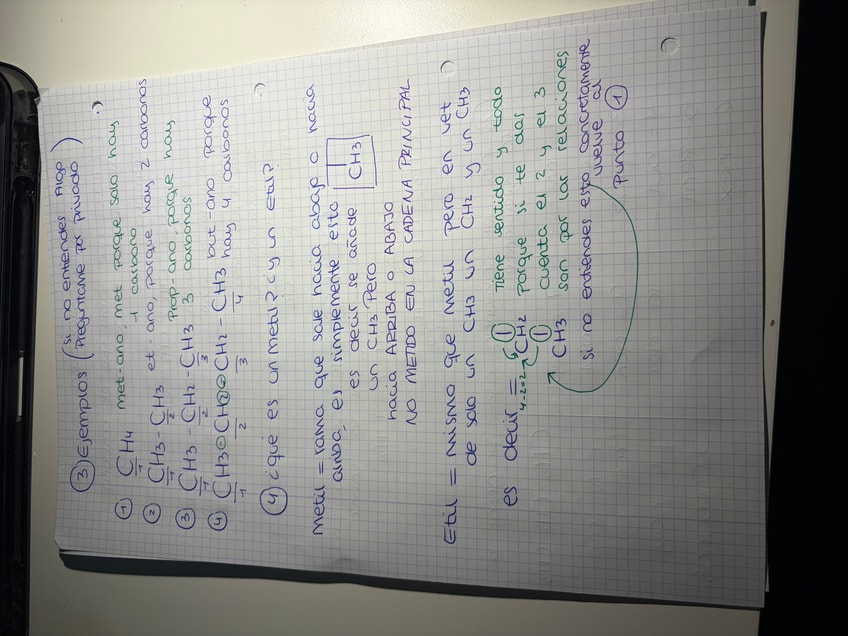 ③ Ejemplos (si no entiendes Algo
Preguntame por privado)
① CH4 met-ano, met porque solo hay
1 1 carbono
② CH3 - CH3 et-ano, porque hay 2 carbonos
1 2
③ CH3 - CH2 - CH3 Prop-ano, porque hay
1 2 3 3 carbonos
④ CH3 - CH2 - CH2 - CH3 but-ano porque
1 2 3 4 hay 4 carbonos
④ ¿qué es un metil? ¿y un etil? :)
Metil = rama que sale hacia abajo o hacia
arriba, es simplemente esto CH3
es decir se añade
un CH3 pero
hacia ARRIBA o ABAJO
NO METIDO EN LA CADENA PRINCIPAL
Etil = mismo que metil pero en vez
de solo un CH3 un CH2 y un CH3
es decir = CH2 ① tiene sentido y todo
4-2=2 porque si te das
① cuenta el 2 y el 3
CH3 son por las relaciones
si no entiendes esto concretamente
vuelve al
punto ①